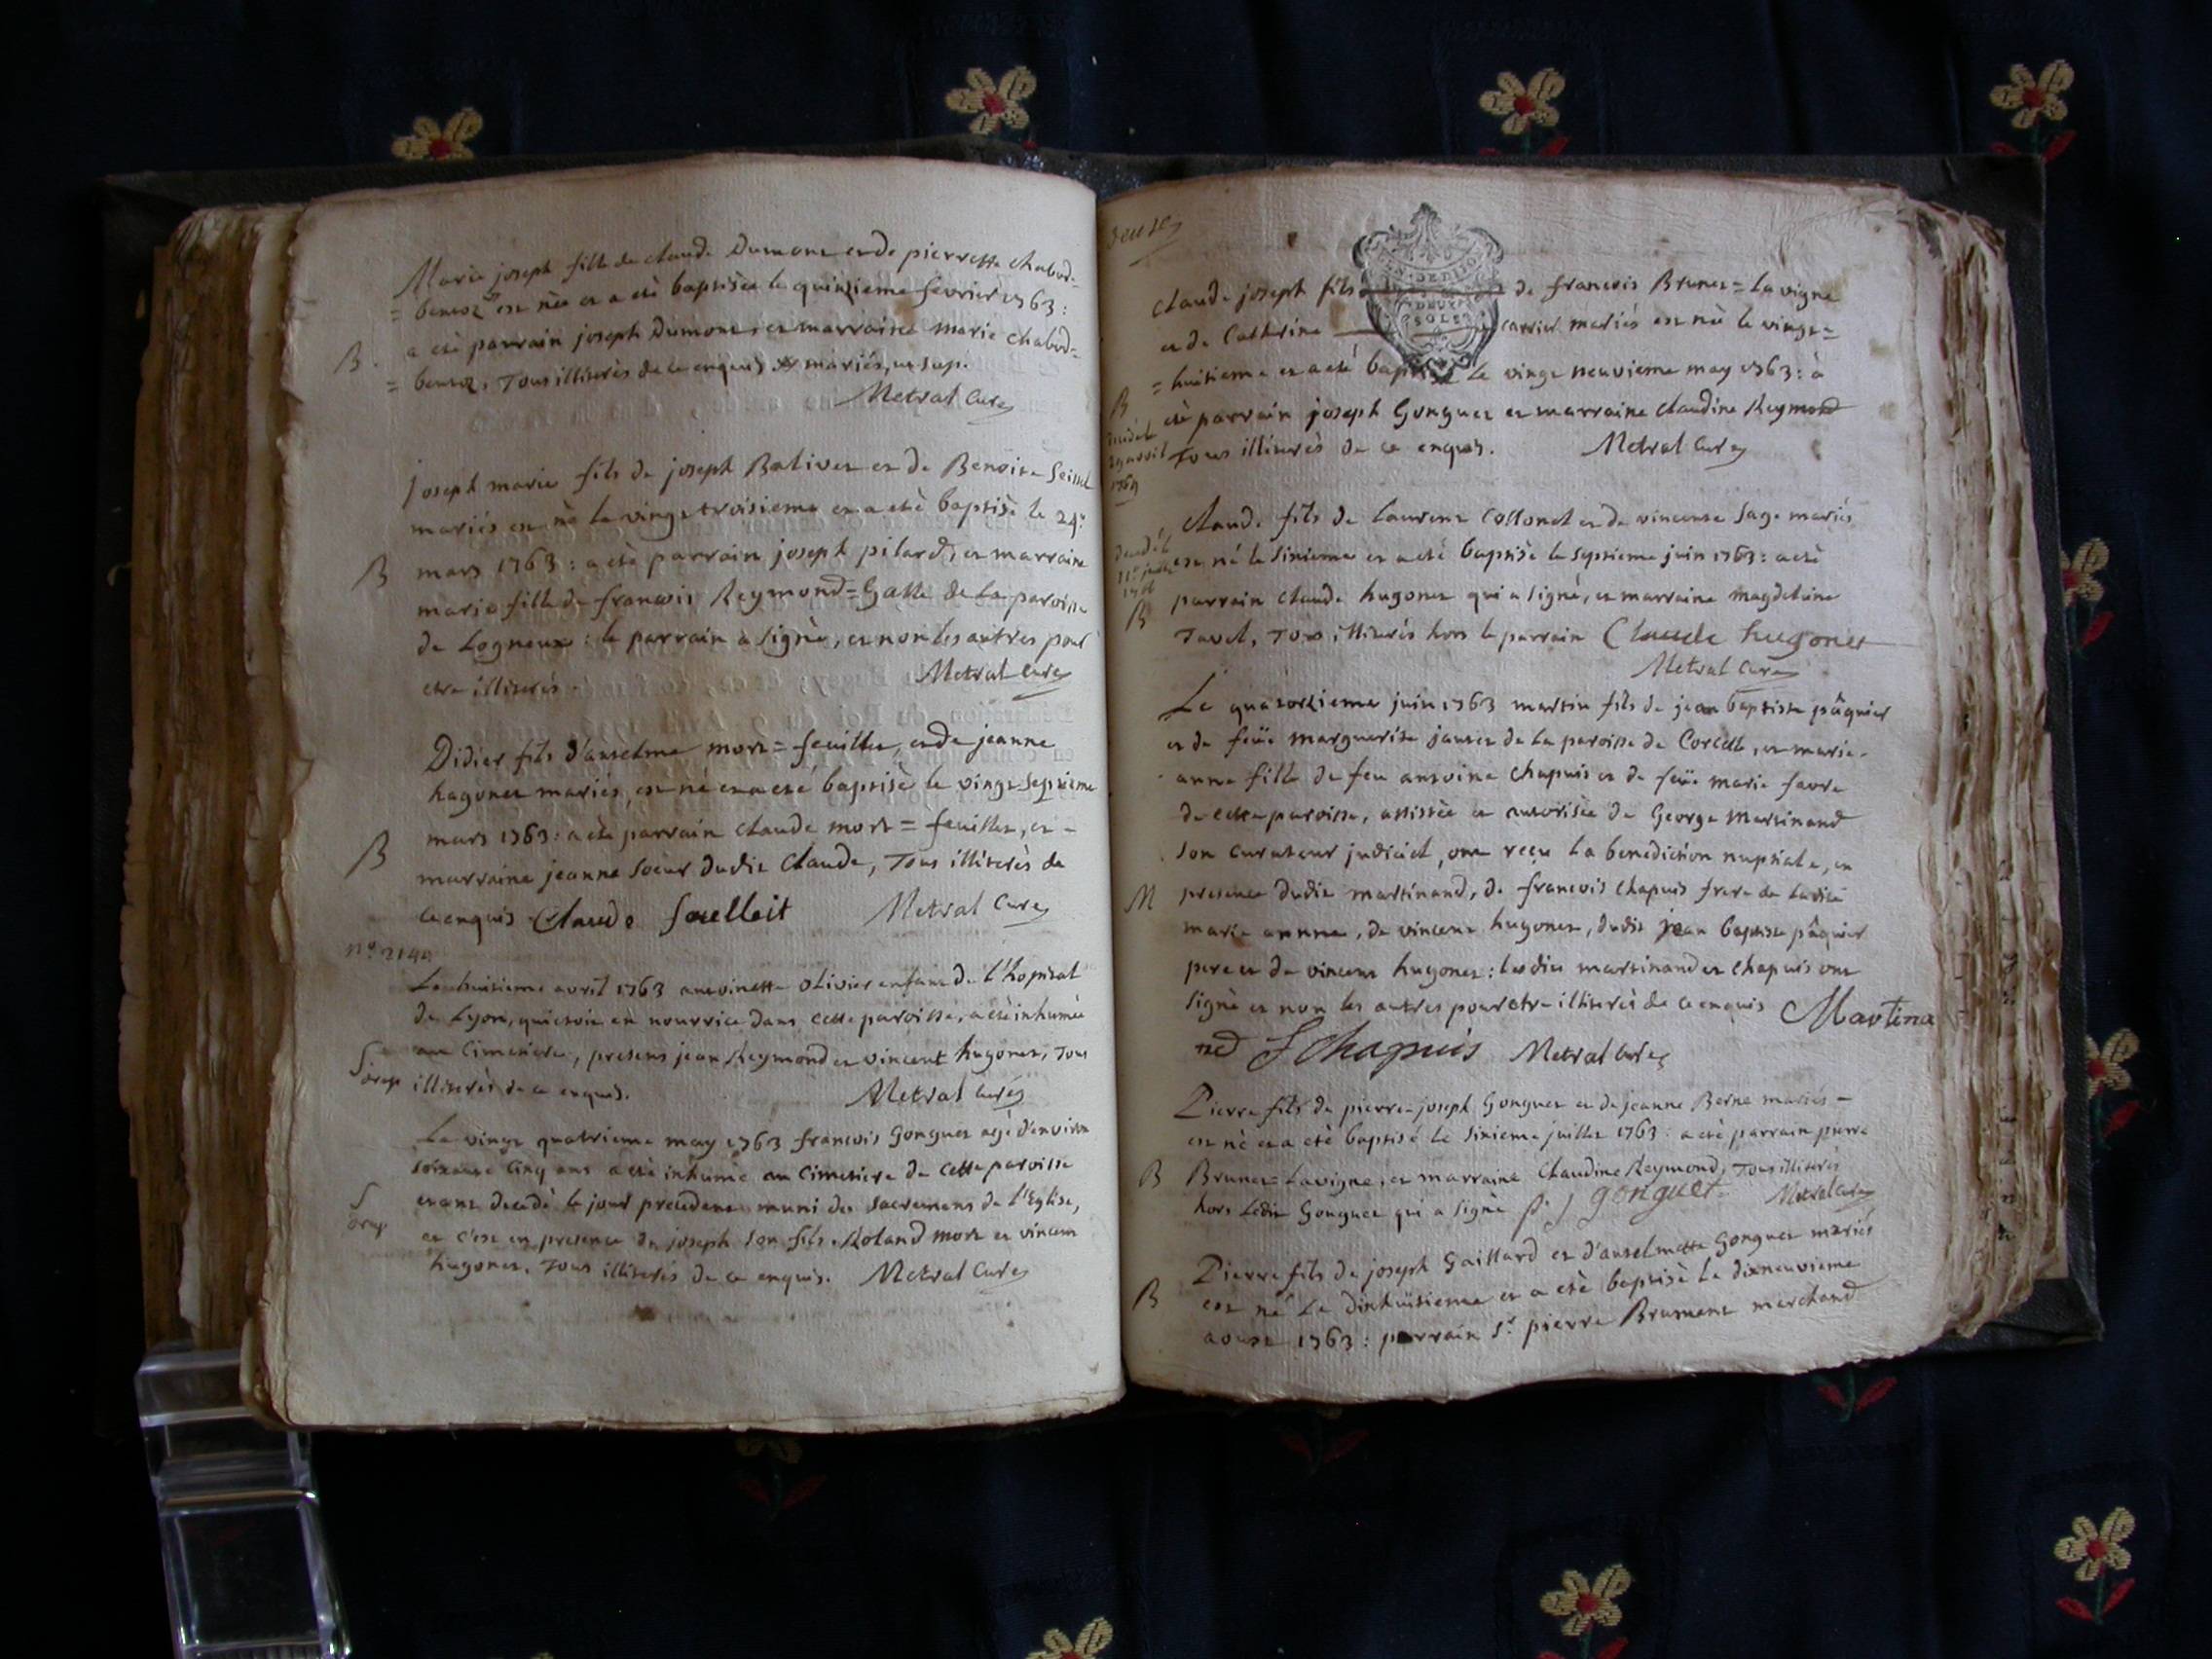 Marie joseph fille de claude Dumont et de pierrette chabod=
= benest est née et a eté baptisée le quinzieme fevrier 1763 :
a eté parrain joseph Dumont, et marraine marie chabod=
B.
= benest, Tous illiterés de ce enquis mariés, ut sup.
Metral Curé
joseph marie fils de joseph Balivet et de Benoite Seissel
mariés est né le vingt troisieme et a eté baptisé le 24e
B mars 1763 : a eté parrain joseph pilard, et marraine
marie fille de francois Reymond=Gatte de la paroisse
de Logneux : le parrain a signé, et non les autres pour
etre illiterés.
Metral Curé
Didier fils d'anselme mort=feuillet, et de jeanne
hugonet mariés, est né et a eté baptisé le vingt septieme
mars 1763 : a eté parrain claude mort=feuillet, et -
B marraine jeanne soeur dudit Claude, Tous illiterés de
ce enquis Claude
Metral Curé
Le huitieme avril 1763 antoinette olivier enfant de l'hopital
de Lyon, qui etoit en nourrice dans cette paroisse, a eté inhumée
S au Cimetiere, presens jean Reymond et vincent hugonet, Tous
illiterés de ce enquis.
Metral Curé
Le vingt quatrieme may 1763 francois Gonguet agé d'environ
soixante cinq ans a eté inhumé au Cimetiere de cette paroisse
S etant decedé le jour precedent muni des sacremens de l'Eglise,
et c'est en presence de joseph son fils, Roland mort et vincent
hugonet, Tous illiterés de ce enquis. Metral Curé
Claude joseph fils de francois Brunet=la vigne
et de Catherine carrier mariés est né le vingt=
= huitieme et a eté baptisé le vingt neuvieme may 1763 : a
B
eté parrain joseph Gonguet et marraine claudine Reymond
Tous illiterés de ce enquis. Metral Curé
Claude fils de Laurent Collonet et de vincente Sage mariés
est né le sixieme et a eté baptisé le septieme juin 1763 : a eté
parrain claude hugonet qui a signé, et marraine magdelaine
B
Tavel, Tous illiterés hors le parrain Claude hugonet
Metral Curé
Le quatorzieme juin 1763 martin fils de jean baptiste pâquier
et de feüe marguerite janet de la paroisse de Corcelle, et marie-
anne fille de feu antoine chapuis et de feüe marie favre
de cette paroisse, assistée et autorisée de George Martinand
son curateur judiciel, ont reçu la benediction nuptiale, en
M presence dudit martinand, de francois chapuis frere de ladite
marie annne, de vincent hugonet, dudit jean baptiste pâquier
pere et de vincent hugonet : lesdits martinand et chapuis ont
signé et non les autres pour etre illiterés de ce enquis Martina
nd f Chapuis Metral Curé
Pierre fils de pierre-joseph Gonguet et de jeanne Berne mariés -
est né et a eté baptisé le sixieme juillet 1763 : a eté parrain pierre
B Brunet=Lavigne, et marraine Claudine Reymond, Tous illiterés
hors ledit Gonguet qui a signé p. j gonguet Metral Curé
Pierre fils de joseph Gaillard et d'anselmette Gonguet mariés
B est né le dixhuitieme et a eté baptisé le dixneuvieme
aoust 1763 : parrain Sr. pierre Brument marchand